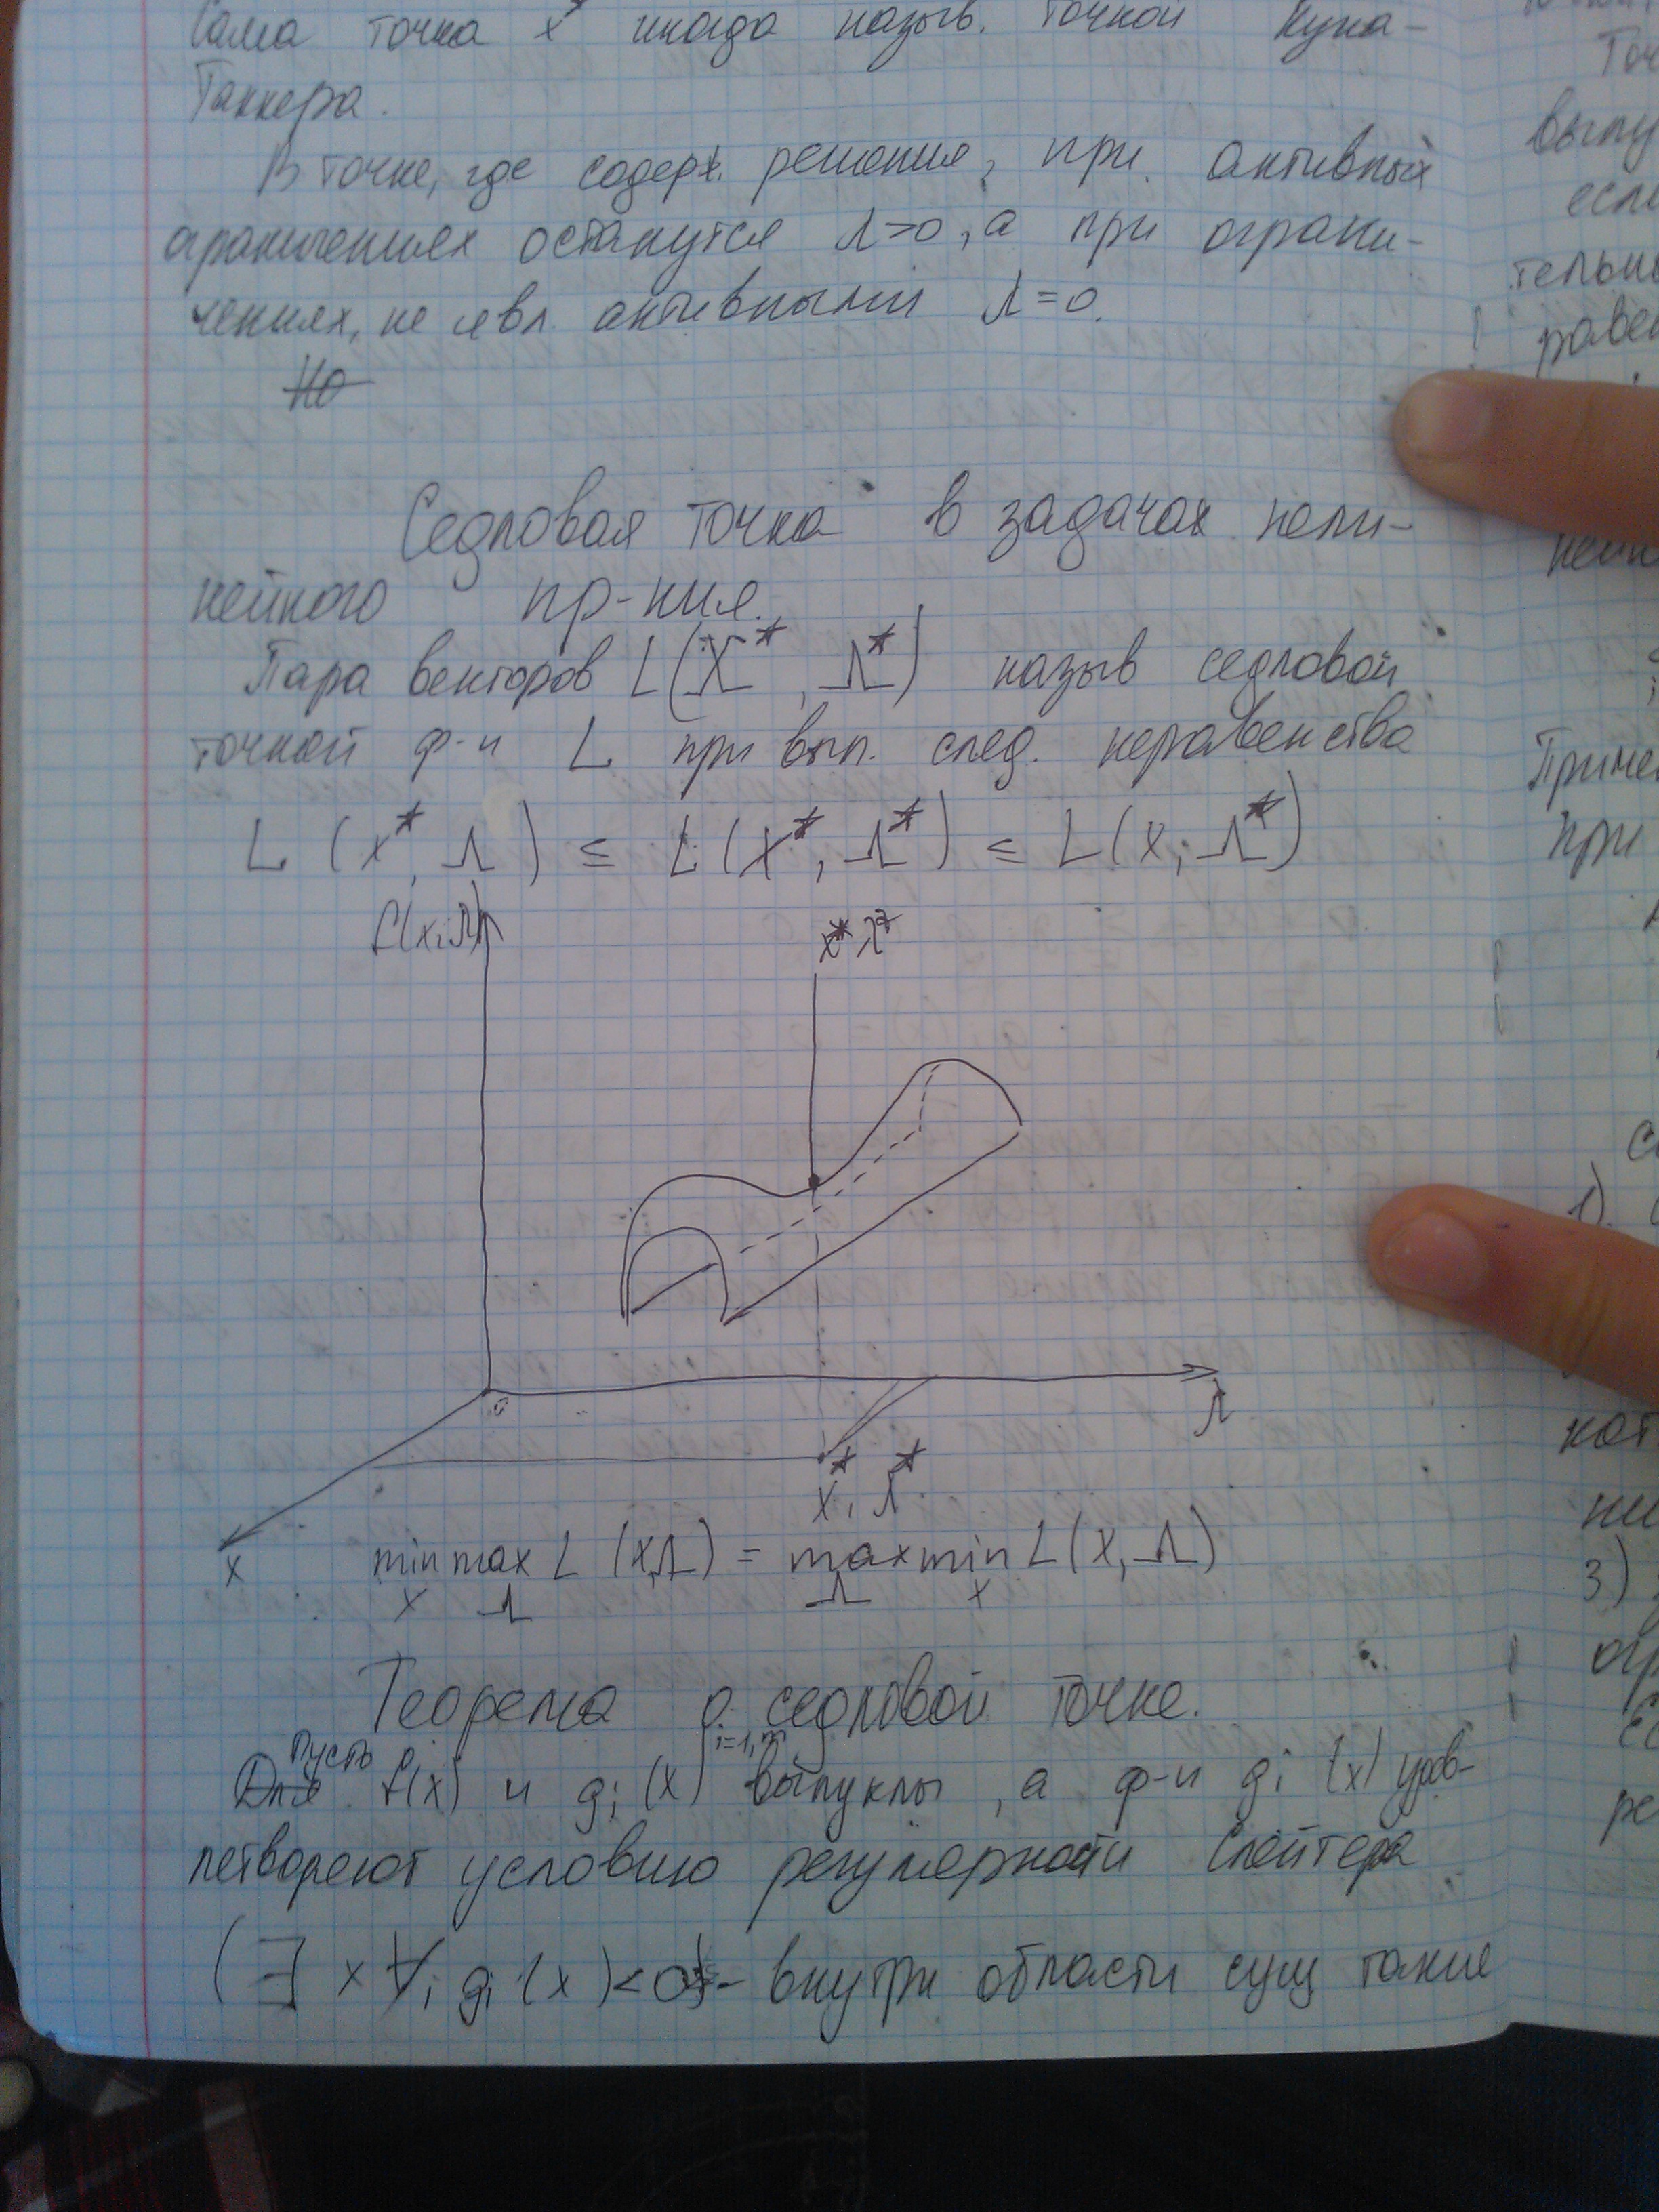 Сама точка x* иногда назыв. точкой Куна-
Таккера.
В точке, где содерж. решение, при активных
ограничениях останутся λ>0, а при ограни-
чениях, не явл. активными λ=0.
Но
Седловая точка в задачах нели-
нейного пр-ния.
Пара векторов L(X*, Λ*) назыв седловой
точкой ф-и L при вып. след. неравенства
L (x*, Λ) ≤ L (x*, Λ*) ≤ L(x, Λ*)
f(x,Λ)
x* λ*
0
Λ
x*, Λ*
x
min max L (x,Λ) = max min L (x, Λ)
x Λ Λ x
Теорема о седловой точке.
пусть i=1,m
Для f(x) и gi (x) выпуклы, а ф-и gi (x) удов-
летворяют условию регулярности Слейтера
(∃ x ∀i gi (x) < 0) - внутри области сущ такие
Точ
выпу
если
тельны
равен
Приме
при
1)
кот
3)